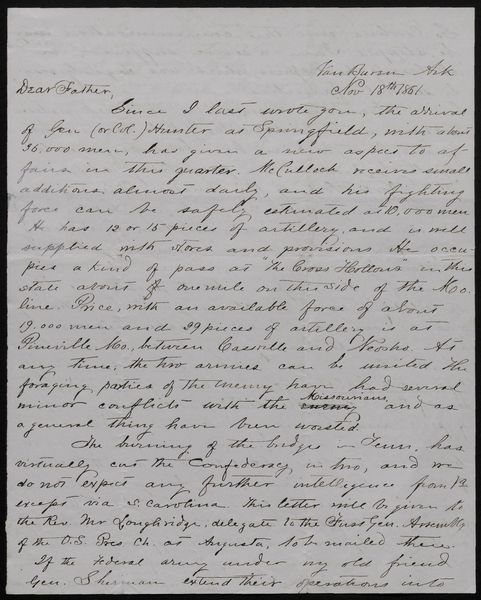 Van Buren Ark
Nov 18th 1861
Dear Father,
Since I last wrote you, the arrival
of Gen (or Col.) Hunter at Springfield, with about
30,000 men, has given a new aspect to af
fairs in this quarter. McCulloch receives small
additions almost daily, and his fighting
force can be safely estimated at 10,000 men
He has 12 or 15 pieces of artillery, and is well
supplied with stores and provisions. He occu
pies a kind of pass at "The Cross Hollows" in this
state about one mile on this side of the Mo.
line. Price, with an available force of about
19,000 men and 39 pieces of artillery is at
Pineville Mo., between Cassville and Neosho. At
any time, the two armies can be united. The
foraging parties of the enemy have had several
minor conflicts with the enemy Missourians, and as
a general thing have been worsted.
The burning of the bridges in Tenn. has
virtually cut the Confederacy in two, and we
do not expect any further intelligence from Va
except via S. Carolina. This letter will be given to
the Rev. Mr Loughridge, delegate to the First Gen. Assembly
of the O.S. Pres. Ch. at Augusta, to be mailed there.
If the Federal army under my old friend
Gen. Sherman extend their operations into